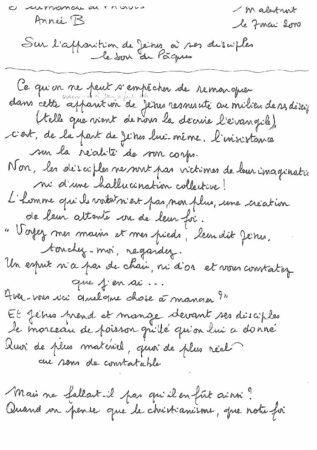 Année B
le 7 mai 2000
Sur l'apparition de Jésus à ses disciples
le soir de Pâques
Ce qu'on ne peut s'empêcher de remarquer
dans cette apparition de Jésus ressuscité au milieu de ses discip
(telle que vient de nous la décrire l'évangile)
c'est, de la part de Jésus lui-même, l'insistance
sur la réalité de son corps.
Non, les disciples ne sont pas victimes de leur imaginati
ni d'une hallucination collective!
L'homme qu'ils voient n'est pas, non plus, une création
de leur attente ou de leur foi.
"Voyez mes mains et mes pieds, leur dit Jésus,
touchez-moi, regardez.
Un esprit n'a pas de chair, ni d'os et vous constatez
que j'en ai...
Avez-vous ici quelque chose à manger?"
Et Jésus prend et mange devant ses disciples
le morceau de poisson grillé qu'on lui a donné
Quoi de plus matériel, quoi de plus réel
au sens de constatable
Mais ne fallait-il pas qu'il en fût ainsi?
Quand on pense que le christianisme, que notre foi